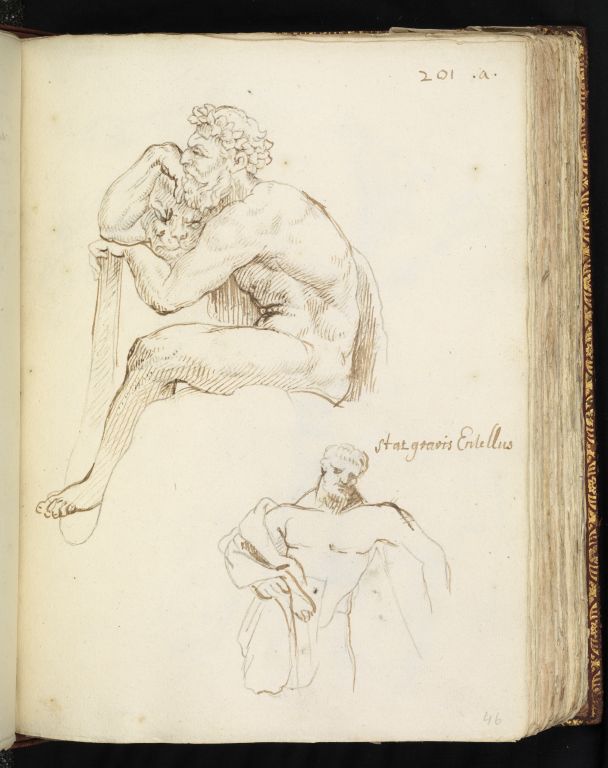 201 .a.
stat gravis Entellus
46